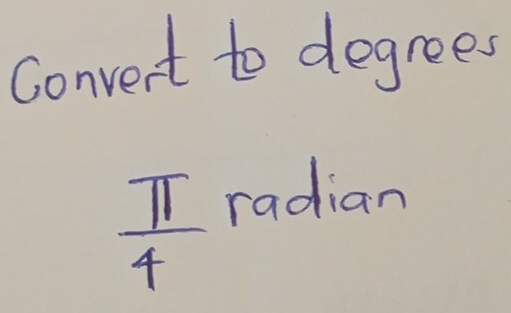 Convert to degrees
π/4 radian